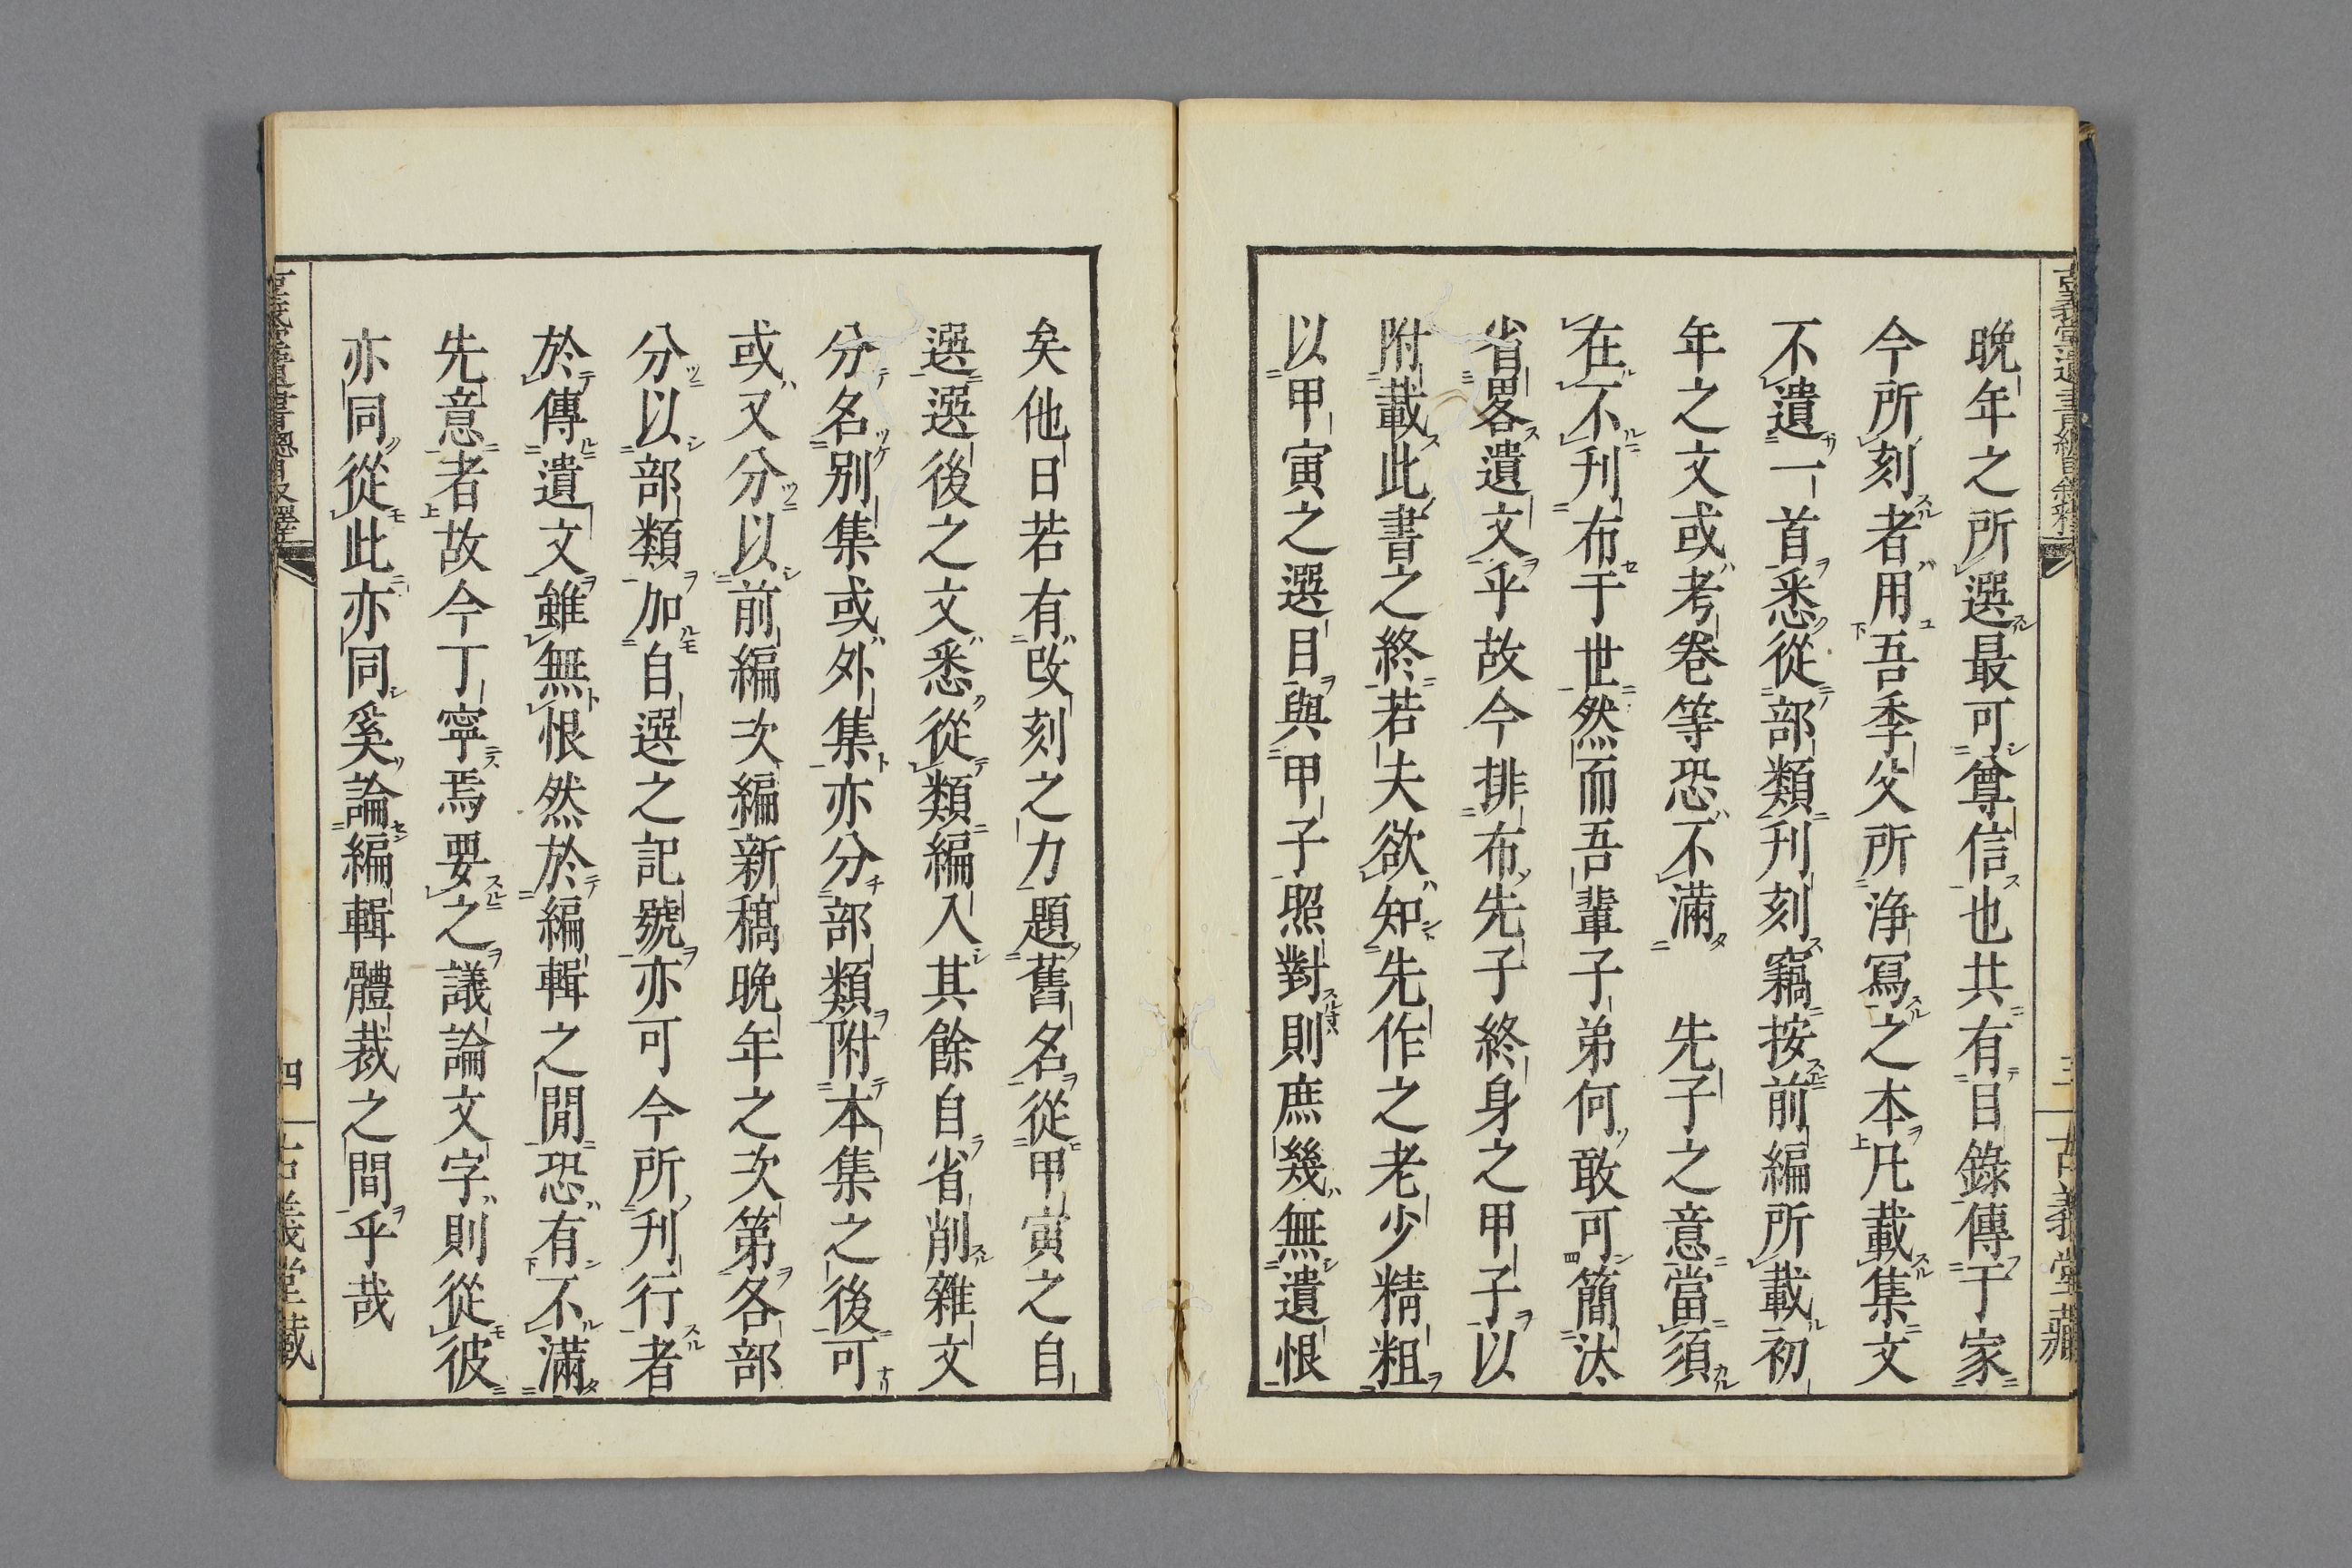 晩年之所選最可尊信也共有目錄傳于家
今所刻者用吾季父所淨寫之本凡載集文
不遺一首悉從部類刊刻竊按前編所載初
年之文或考卷等恐不滿　先子之意當須
在不刊布于世然而吾輩子弟何敢可簡汰
省畧遺文乎故今排布先子終身之甲子以
附載此書之終若夫欲知先作之老少精粗
以甲寅之選目與甲子照對則庶幾無遺恨
矣他日若有改刻之力題舊名從甲寅之自
選選後之文悉從類編入其餘自省削雜文
分名別集或外集亦分部類附本集之後可
或又分以前編次編新稿晩年之次第各部
分以部類加自選之記號亦可今所刊行者
於傳遺文雖無恨然於編輯之間恐有不滿
先意者故今丁寧焉要之議論文字則從彼
亦同從此亦同奚論編輯體裁之間乎哉
四　古義堂藏